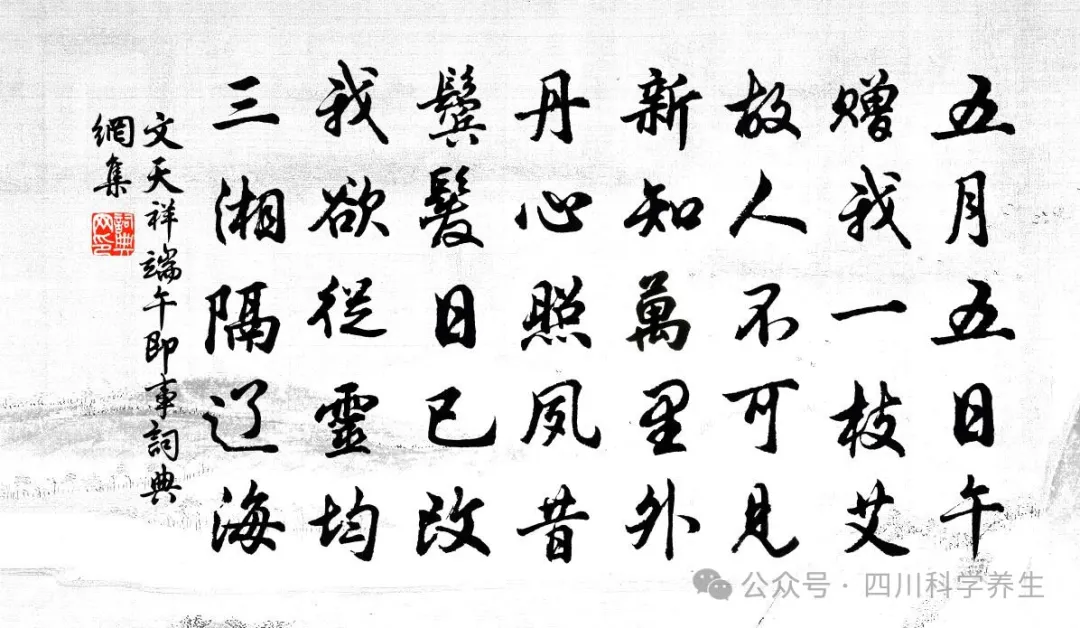 五月五日午
赠我一枝艾
故人不可见
新知萬里外
丹心照夙昔
鬓髮日已改
我欲從靈均
三湘隔辽海
文天祥端午即事詞典
網集
詞典
网印
公众号·四川科学养生